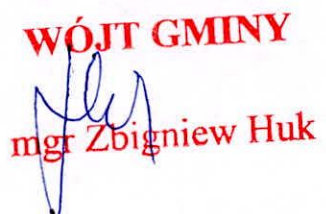 WÓJT GMINY
mgr Zbigniew Huk